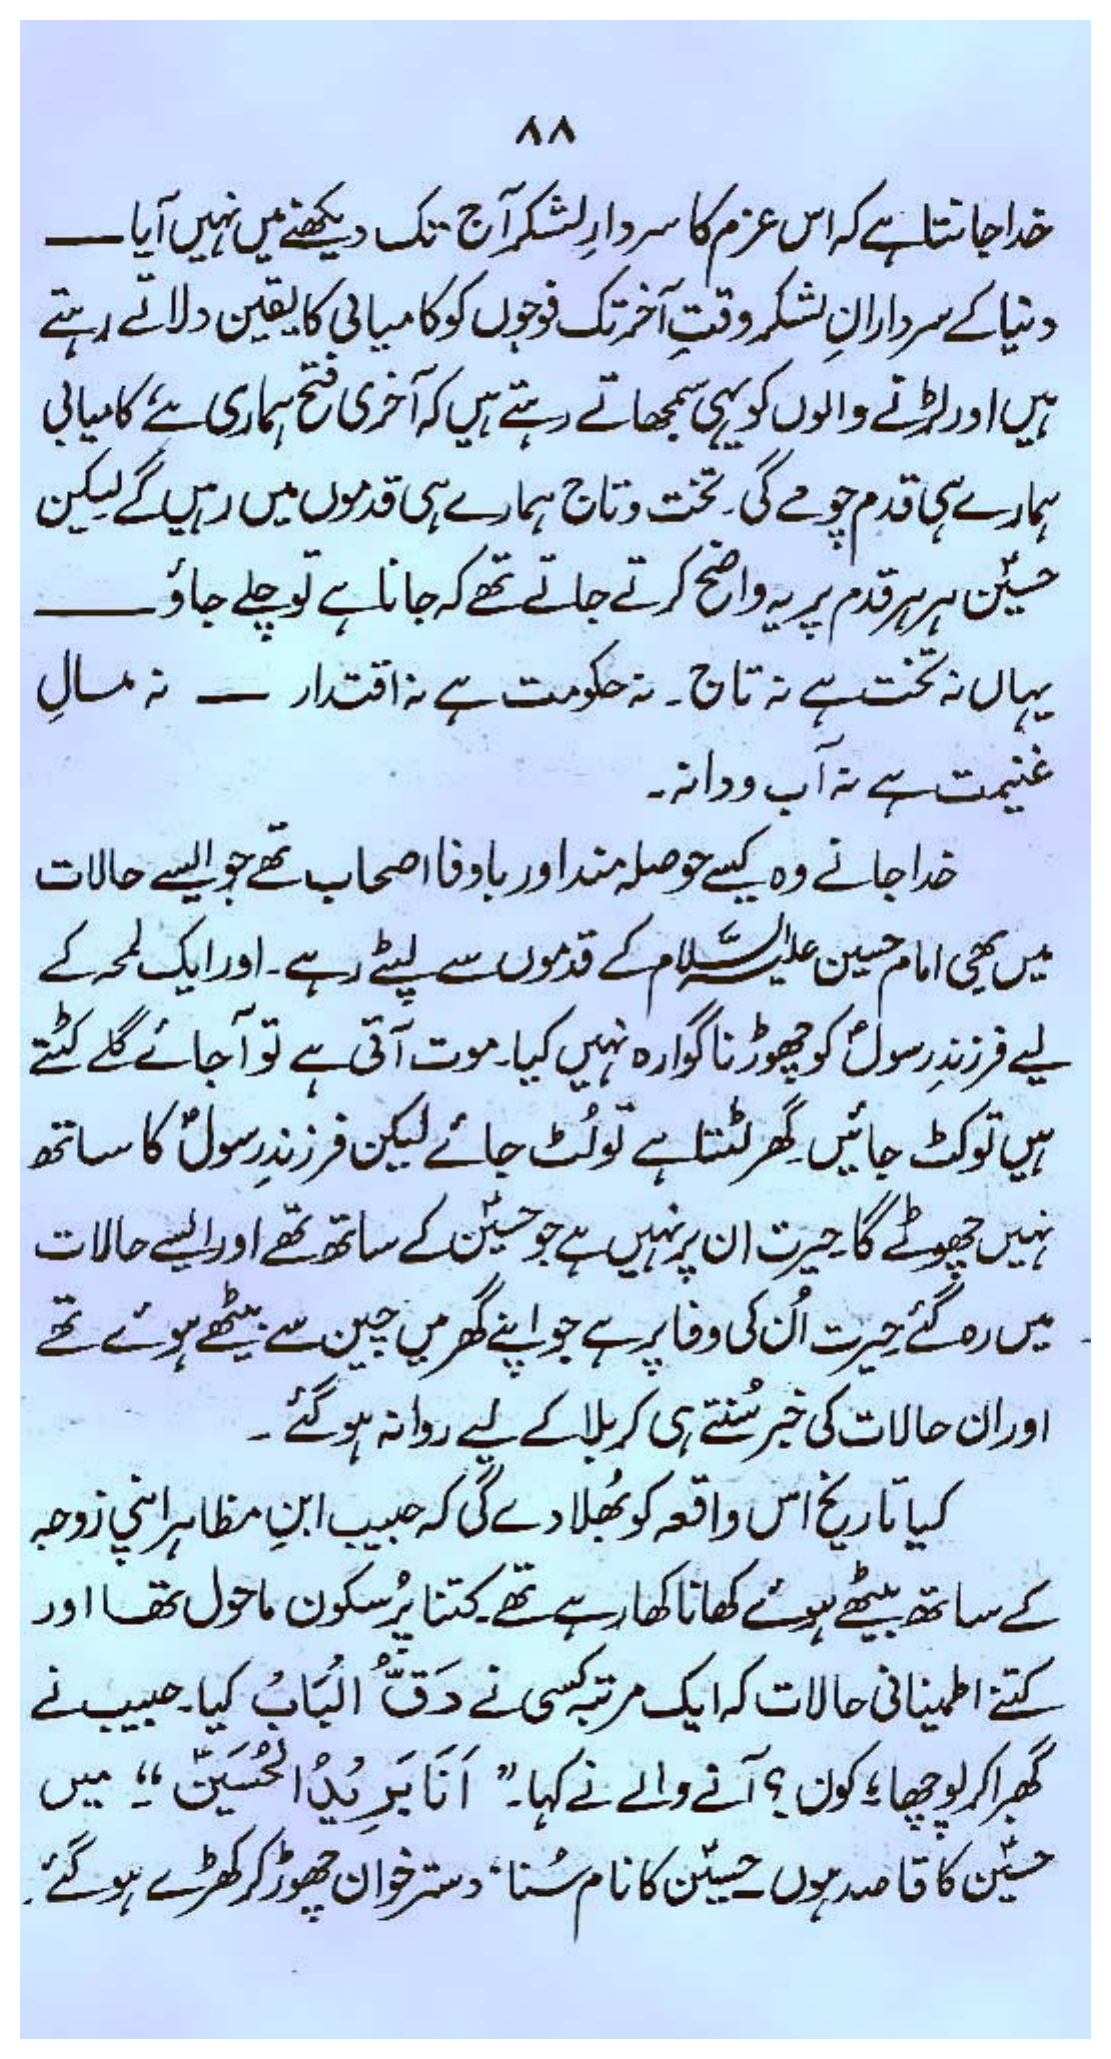 ۸۸
خدا جانتا ہے کہ اس عزم کا سردارِ لشکر آج تک دیکھنے میں نہیں آیا ــــ
دنیا کے سردارانِ لشکر وقتِ آخر تک فوجوں کو کامیابی کا یقین دلاتے رہتے
ہیں اور لڑنے والوں کو یہی سمجھاتے رہتے ہیں کہ آخری فتح ہماری ہے، کامیابی
ہمارے ہی قدم چومے گی۔ تخت و تاج ہمارے ہی قدموں میں رہیں گے لیکن
حسینؑ ہر ہر قدم پر یہ واضح کرتے جاتے تھے کہ جانا ہے تو چلے جاؤ ــــ
یہاں نہ تخت ہے نہ تاج۔ نہ حکومت ہے نہ اقتدار ــــ نہ مالِ
غنیمت ہے نہ آب و دانہ۔
خدا جانے وہ کیسے حوصلہ مند اور باوفا اصحاب تھے جو ایسے حالات
میں بھی امام حسین علیہ السَّلام کے قدموں سے لپٹے رہے۔ اور ایک لمحہ کے
لیے فرزندِ رسولؐ کو چھوڑنا گوارہ نہیں کیا۔ موت آتی ہے تو آ جائے گلے کٹتے
ہیں تو کٹ جائیں۔ گھر لٹتا ہے تو لُٹ جائے لیکن فرزندِ رسولؐ کا ساتھ
نہیں چھوٹے گا۔ حیرت ان پر نہیں ہے جو حسینؑ کے ساتھ تھے اور ایسے حالات
میں رہ گئے حیرت اُن کی وفا پر ہے جو اپنے گھر میں چین سے بیٹھے ہوئے تھے
اور ان حالات کی خبر سُنتے ہی کربلا کے لیے روانہ ہو گئے۔
کیا تاریخ اس واقعہ کو بھُلا دے گی کہ حبیب ابنِ مظاہر اپنی زوجہ
کے ساتھ بیٹھے ہوئے کھانا کھا رہے تھے۔ کتنا پُرسکون ماحول تھا اور
کتنے اطمینانی حالات کہ ایک مرتبہ کسی نے دَقُّ الْبَابُ کیا۔ حبیب نے
گھبرا کر پوچھا، کون؟ آنے والے نے کہا۔ ”اَنَا بَرِیْدُ الْحُسَیْنؑ“ میں
حسینؑ کا قاصد ہوں۔ حسینؑ کا نام سُنا، دسترخوان چھوڑ کر کھڑے ہو گئے۔